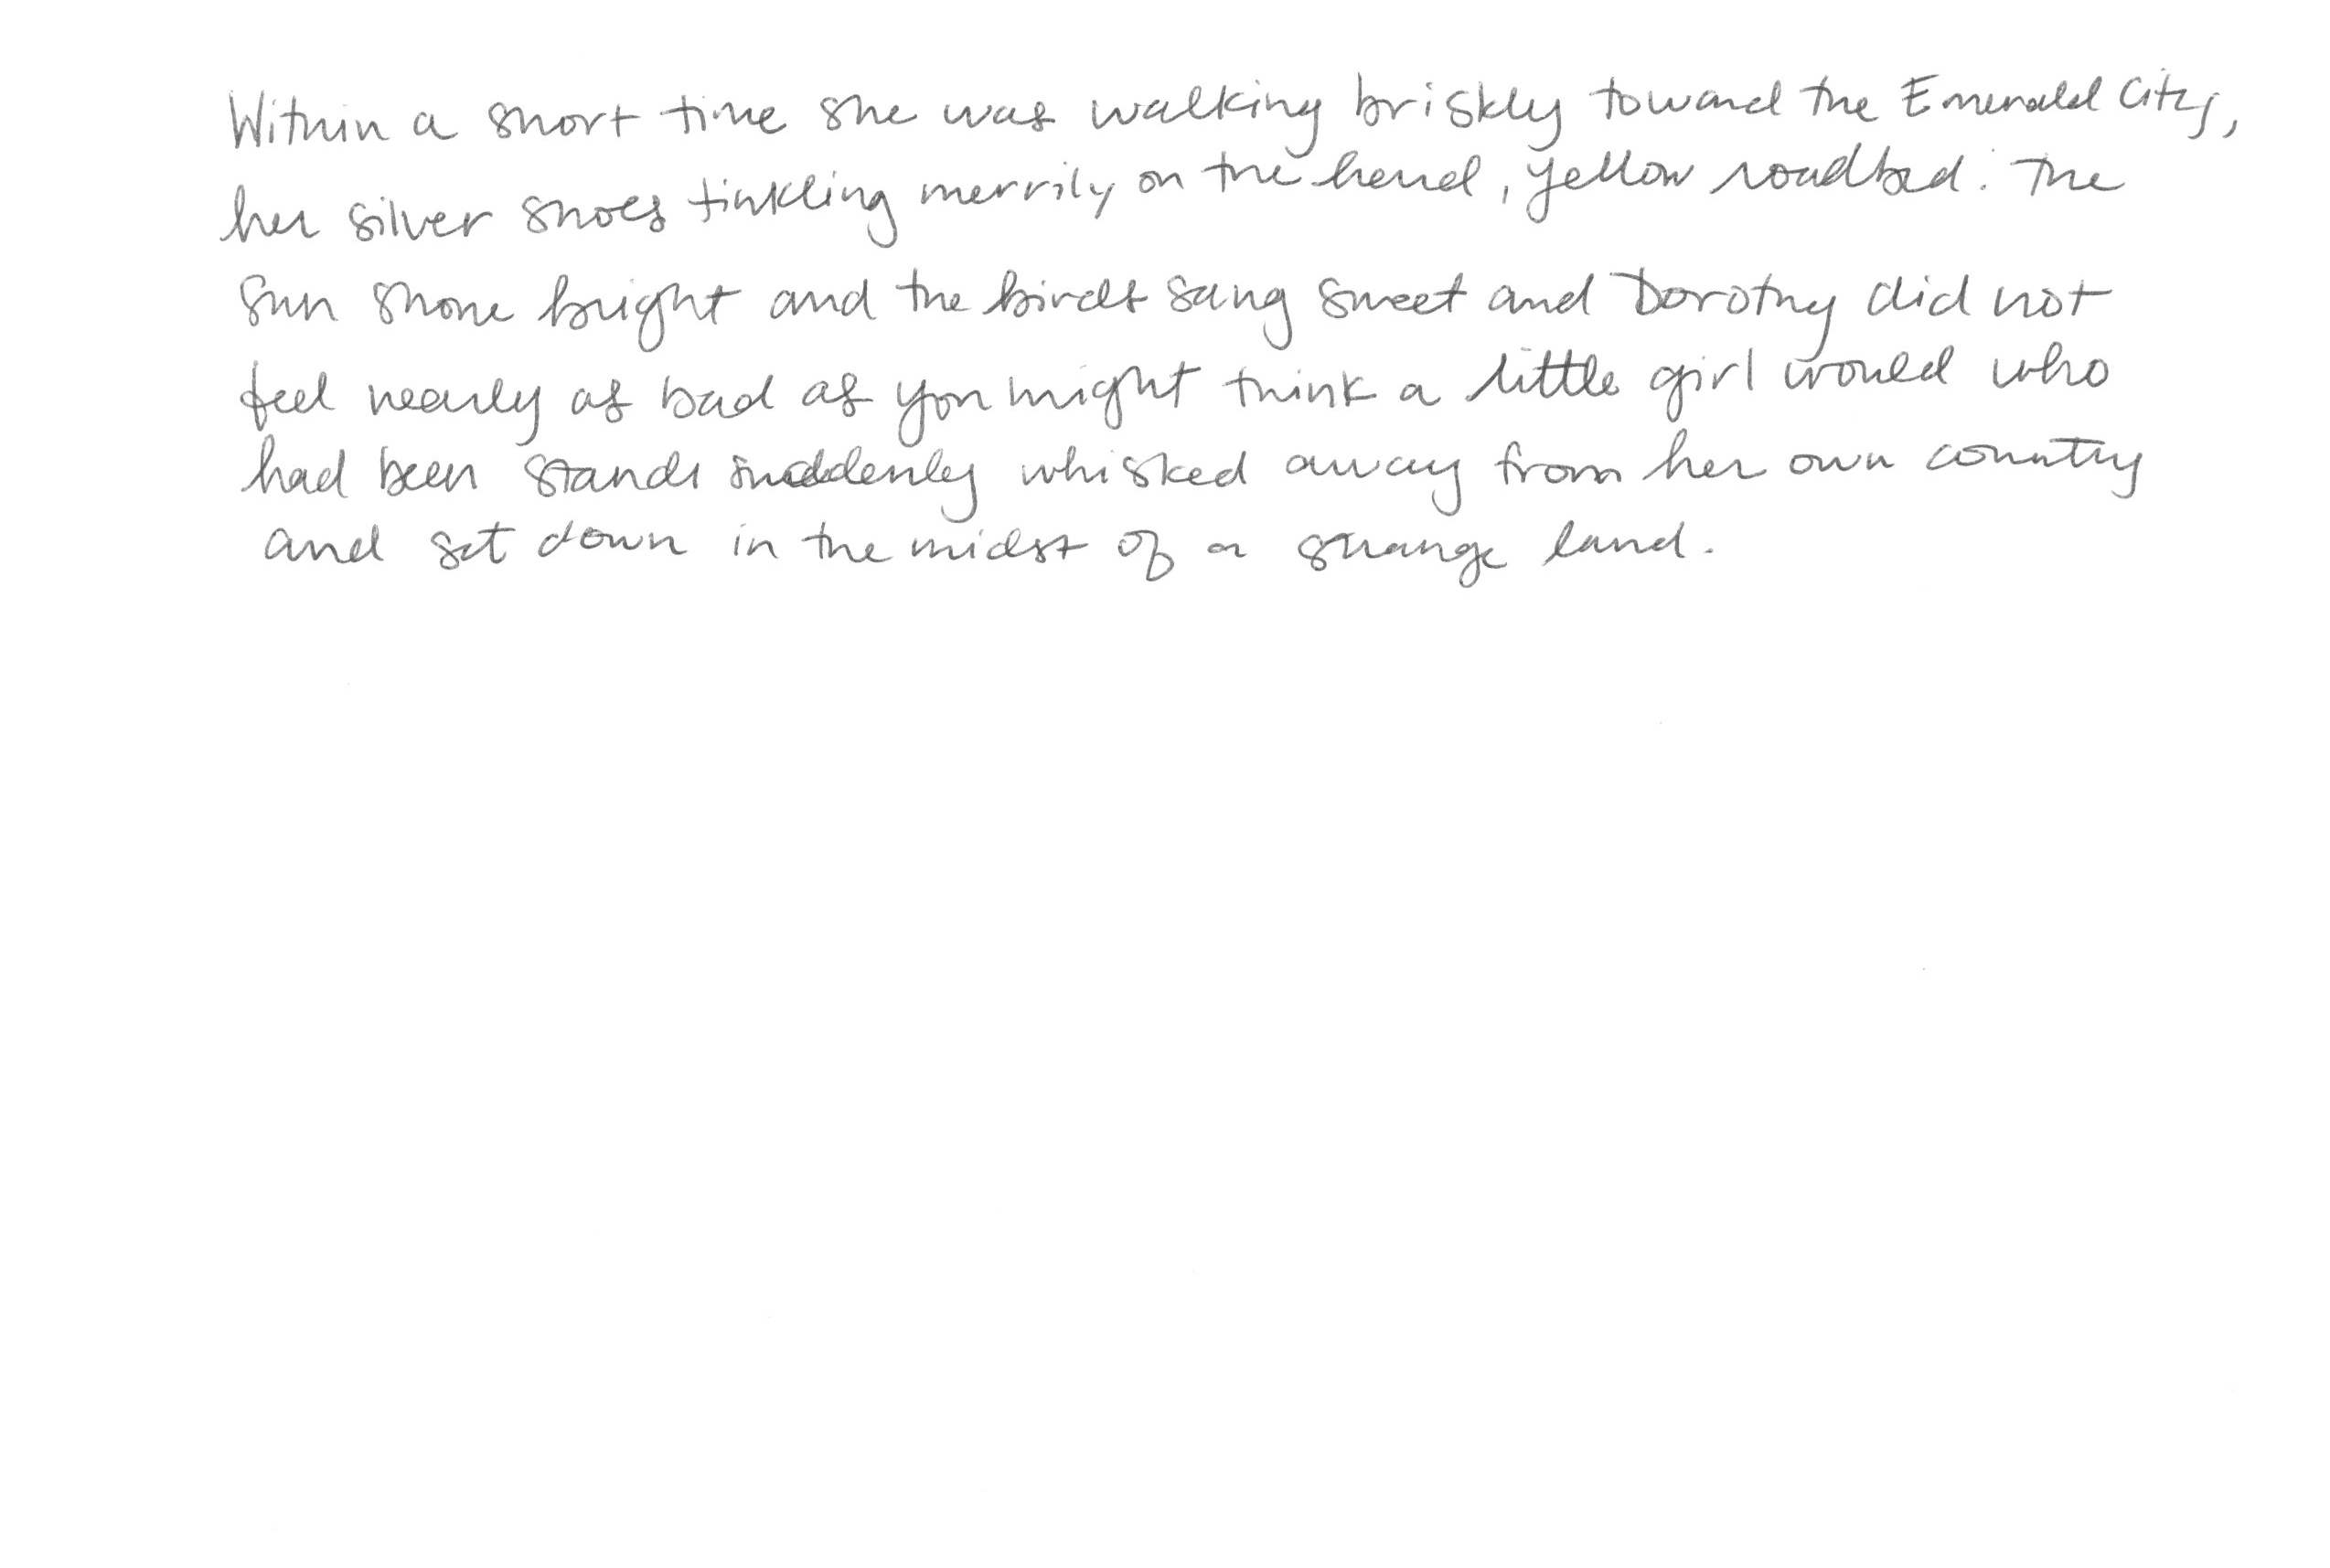 Within a short time she was walking briskly toward the Emerald City,
her silver shoes tinkling merrily on the hard, yellow roadbed. The
sun shone bright and the birds sang sweet and Dorothy did not
feel nearly as bad as you might think a little girl would who
had been suddenly whisked away from her own country
and set down in the midst of a strange land.